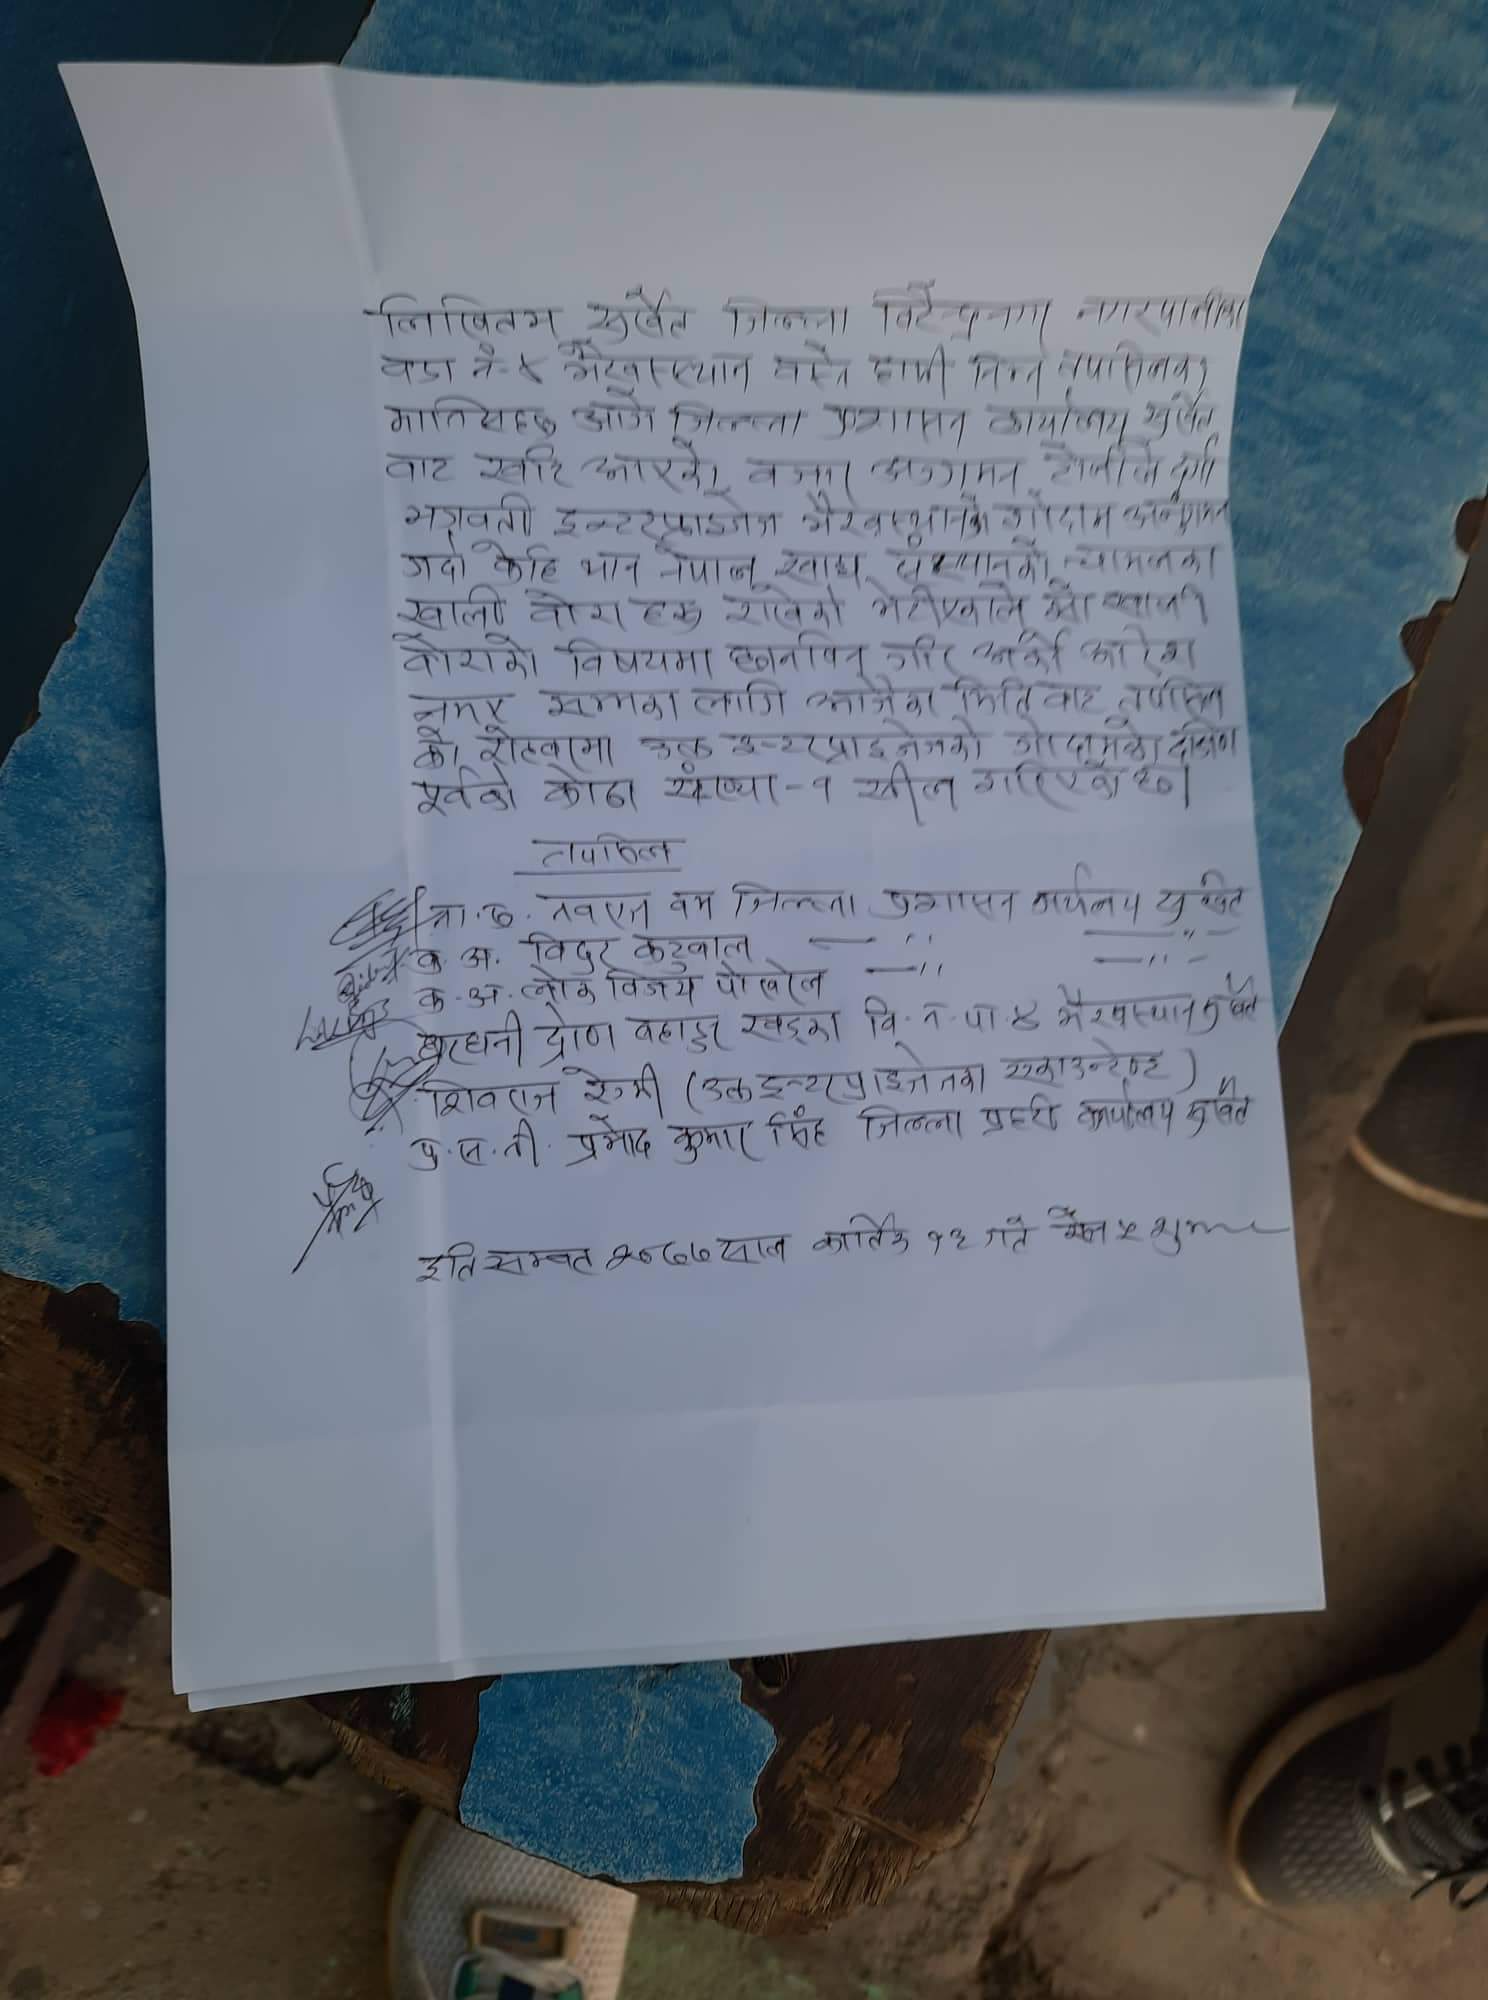 लिखितम सुर्खेत जिल्ला विरेन्द्रनगर नगरपालीका
वडा नं-४ भैरवस्थान बस्ने हामी निम्न तपसिलका
मानिसहरु आगे जिल्ला प्रशासन कार्यालय सुर्खेत
बाट खटि आएको बजार अनुगमन टोलीले दुर्गा
भगवती इन्टरप्राइजेज भैरवस्थानको गोदाम अनुगमन
गर्दा केहि थान नेपाल खाद्य संस्थानको चामलका
खाली बोरा हरु राखेको भेटीएकाले सो खाली
बोराको विषयमा छानविन गरि अर्को आदेश
नभए सम्मका लागि आजैका मितिबाट तपसिल
को रोहवरमा उक्त इन्टरप्राइजेजको गोदामको दक्षिण
पूर्वको कोठा संख्या-१ सील गरिएको छ।
तपसिल
ना.सु. नवराज बम जिल्ला प्रशासन कार्यालय सुर्खेत
क.अ. विदुर कटुवाल —〃 —〃—
क.अ. लोक विजय पोखरेल —〃 —〃—
घरधनी द्रोण बहादुर खड्का वि.न.पा ४ भैरवस्थान सुर्खेत
शिवराज रेग्मी (उक्त इन्टरप्राइजेजका एकाउन्टेण्ट)
प्र.स.नी. प्रमोद कुमार सिंह जिल्ला प्रहरी कार्यालय सुर्खेत
इति सम्वत २०७७ साल कार्तिक १३ गते रोज ५ शुभम